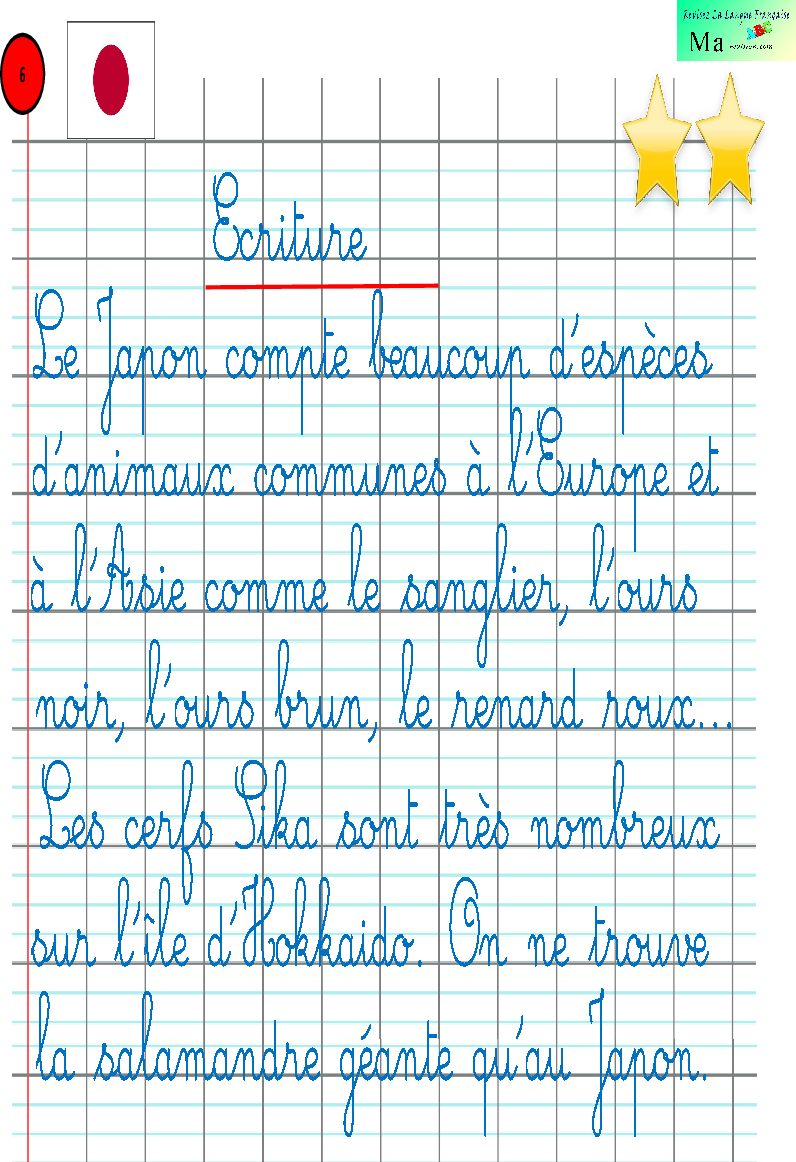 Revisez La Langue Française
Ma
revision.com
6
Ecriture
Le Japon compte beaucoup d'espèces
d'animaux communes à l'Europe et
à l'Asie comme le sanglier, l'ours
noir, l'ours brun, le renard roux...
Les cerfs Sika sont très nombreux
sur l'île d'Hokkaido. On ne trouve
la salamandre géante qu'au Japon.